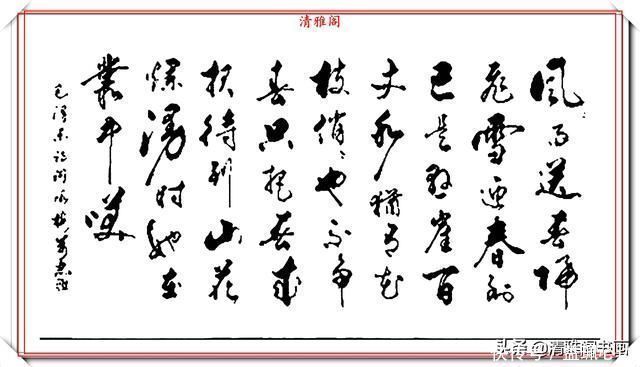 清雅阁
風雨送春归
飛雪迎春到
已是悬崖百
丈冰犹有花
枝俏〻也不争
春只把春来
报待到山花
烂漫时她在
叢中笑
毛泽东词 咏梅
头条 @清雅阁书画
快传号